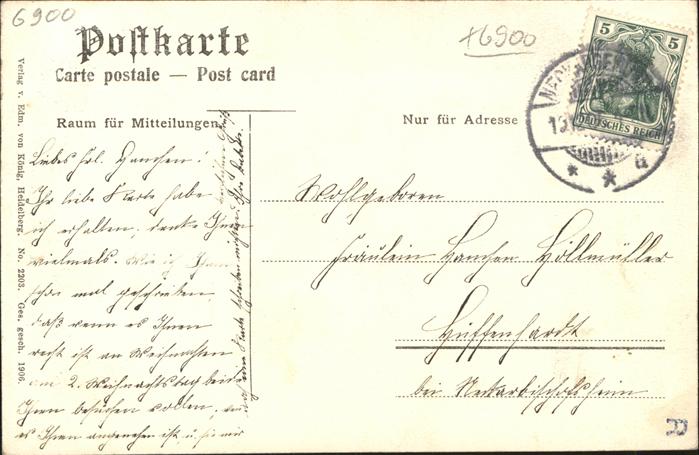 6900
Postkarte
Carte postale — Post card
+6900
5 5
DEUTSCHES REICH
Raum für Mitteilungen
Nur für Adresse
Verlag v. Edm. von König, Heidelberg. No. 2203. Ges. gesch. 1906.
Liebes Frl. Hanchen!
Ihr liebe Karte habe
ich erhalten, danke Ihnen
vielmals. Wie ich Ihnen
schon mal geschrieben,
daß wenn es Ihnen
recht ist an Weihnachten
am 2. Weihnachtstag beide
Ihnen besuchen wollen,
es Ihnen angenehm ist u. sie mir
noch eine Karte schreiben möchten.
Wohlgeboren
Fräulein Hanchen Höllmüller
Hüffenhardt
bei Neckarbischofsheim
R